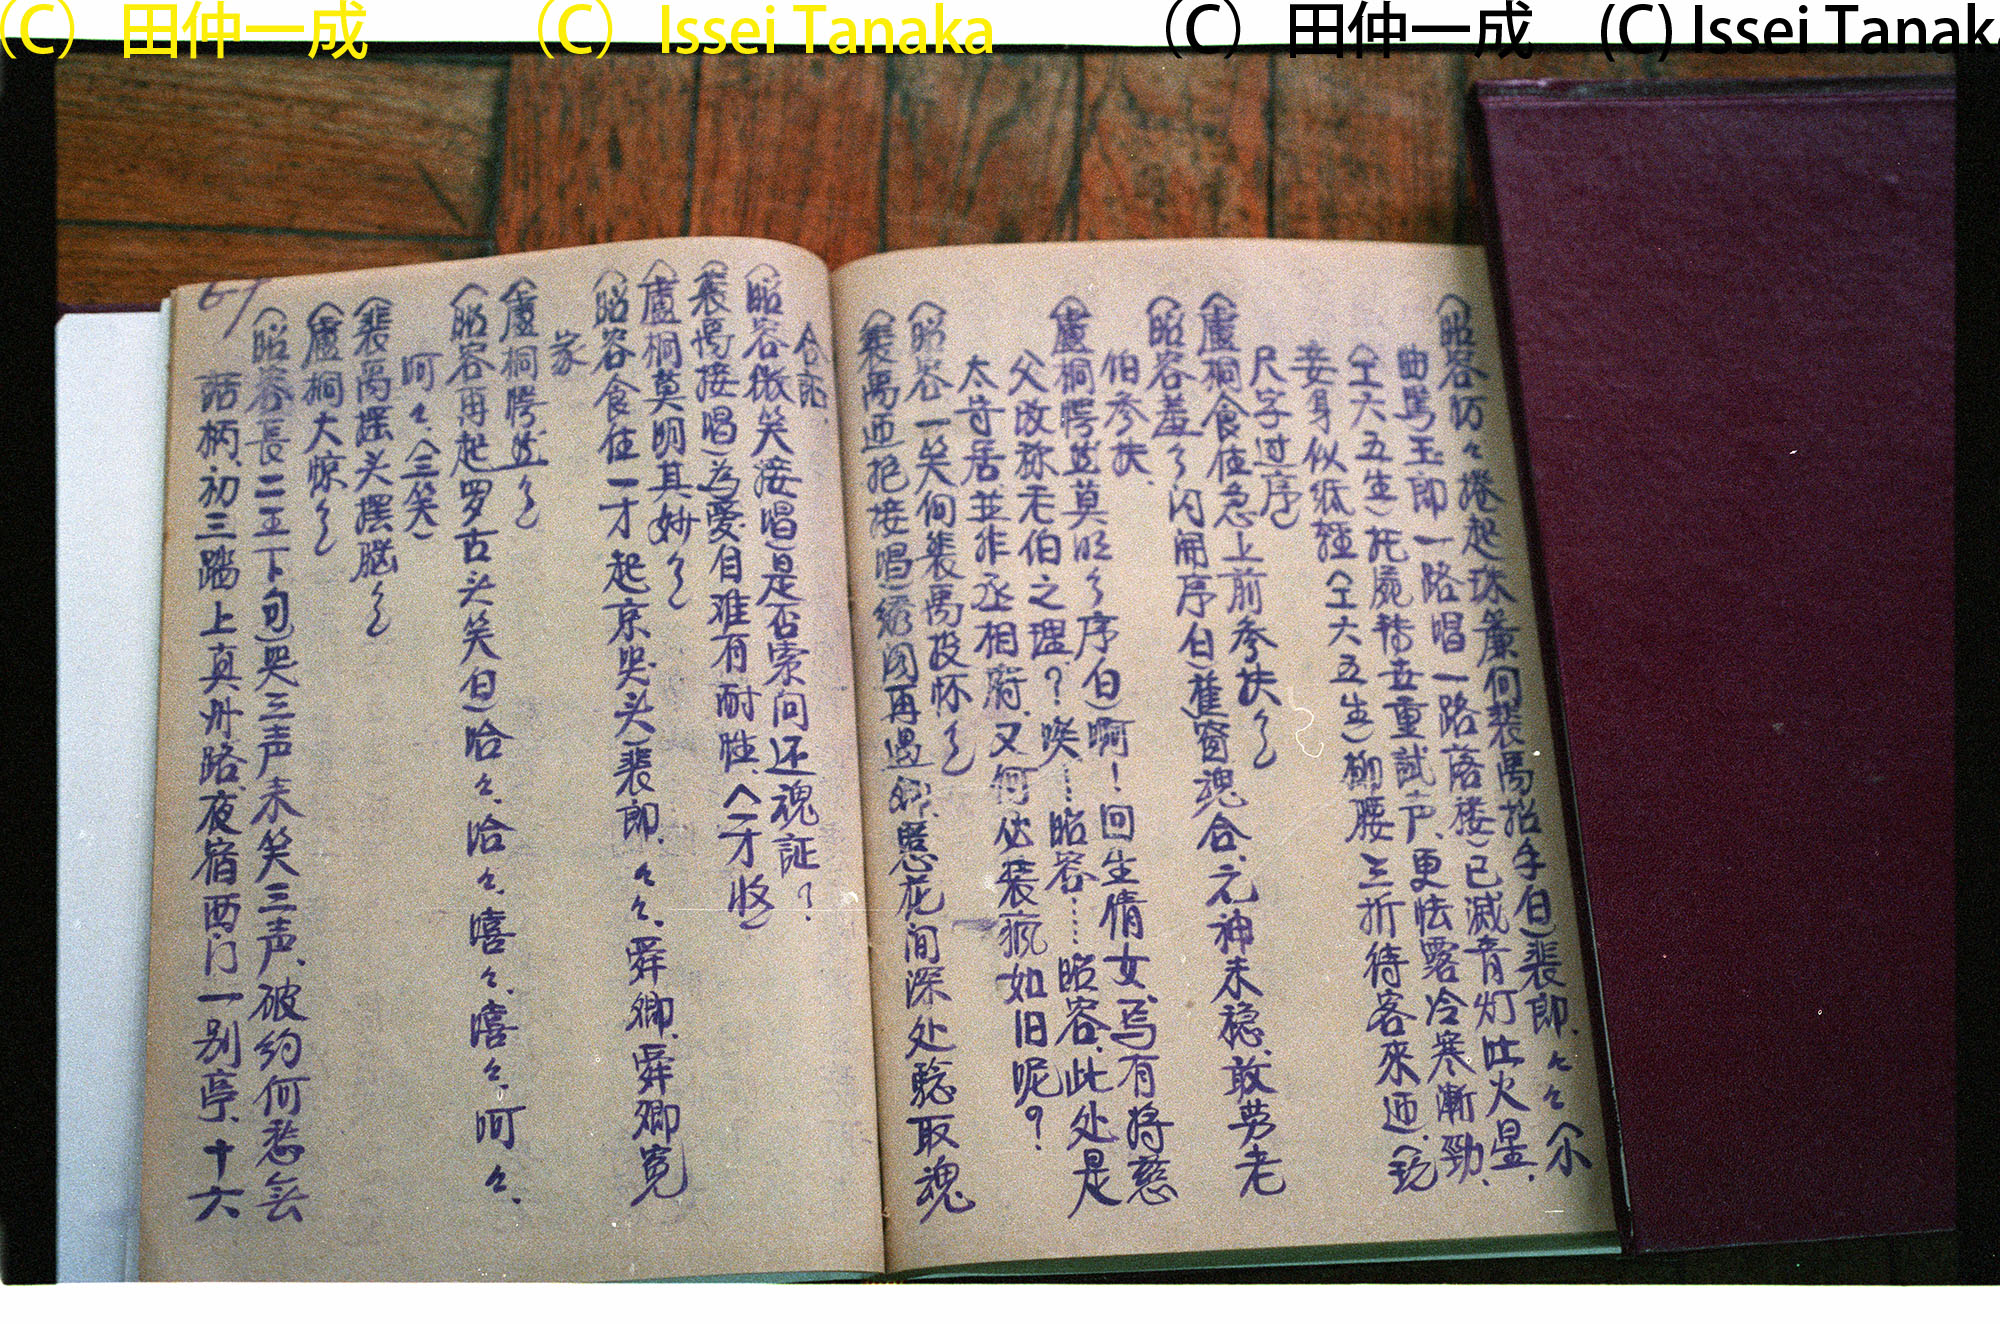 （C） 田仲一成 （C） Issei Tanaka （C） 田仲一成 (C) Issei Tanaka
〈昭容捲起珠簾向裴禹招手白)裴郎、々々〈尔
曲骂玉郎一路唱一路落楼)已滅青灯吐火星、
仝六五生)托屍轉世重試声、更怯露冷寒漸勁、
妾身似纸輕〈仝六五生)柳腰三折待客來迊、
尺字过序
〈盧桐食住急上前参扶介
〈昭容羞介闪閙序白)蕉窗魂合、元神未穏、敢劳老
伯参扶、
〈盧桐愕然莫明介序白)啊！回生倩女、焉有将慈
父改称老伯之理？唉……昭容……昭容、此处是
太守居、並非丞相府、又何必装疯如旧呢？
〈昭容一笑向裴禹投怀介
〈裴禹迊抱接唱)綉阁再遇卿、愿花间深处驗取魂
合
〈昭容微笑接唱)是否索问还魂証？
〈裴禹接唱)為爱自难有耐性、〈一才收
〈盧桐莫明其妙介
〈昭容食住一才起京哭头)裴郎、々々、舜卿、舜卿宽
家
〈盧桐愕然介
〈昭容再起罗古头笑白)哈々、哈々、嘻々、嘻々、呵々、
呵々、〈三笑)
〈裴禹摇头摆脑介
〈盧桐大惊介
〈昭容長二王下句)哭三声未笑三声、破约何愁会
話柄、初三踏上真州路、夜宿西门一别亭、十六